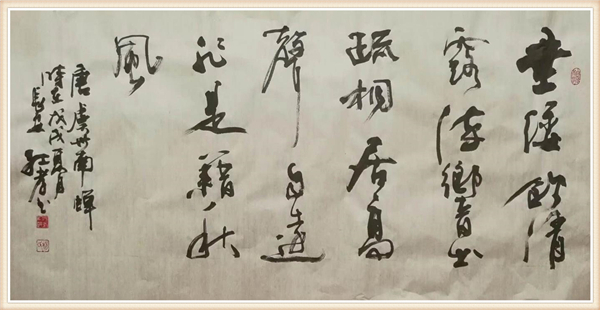 垂緌飲清
露流響出
疏桐居高
聲自遠
非是藉秋
風
唐虞世南蝉
時在戊戌夏月
長安